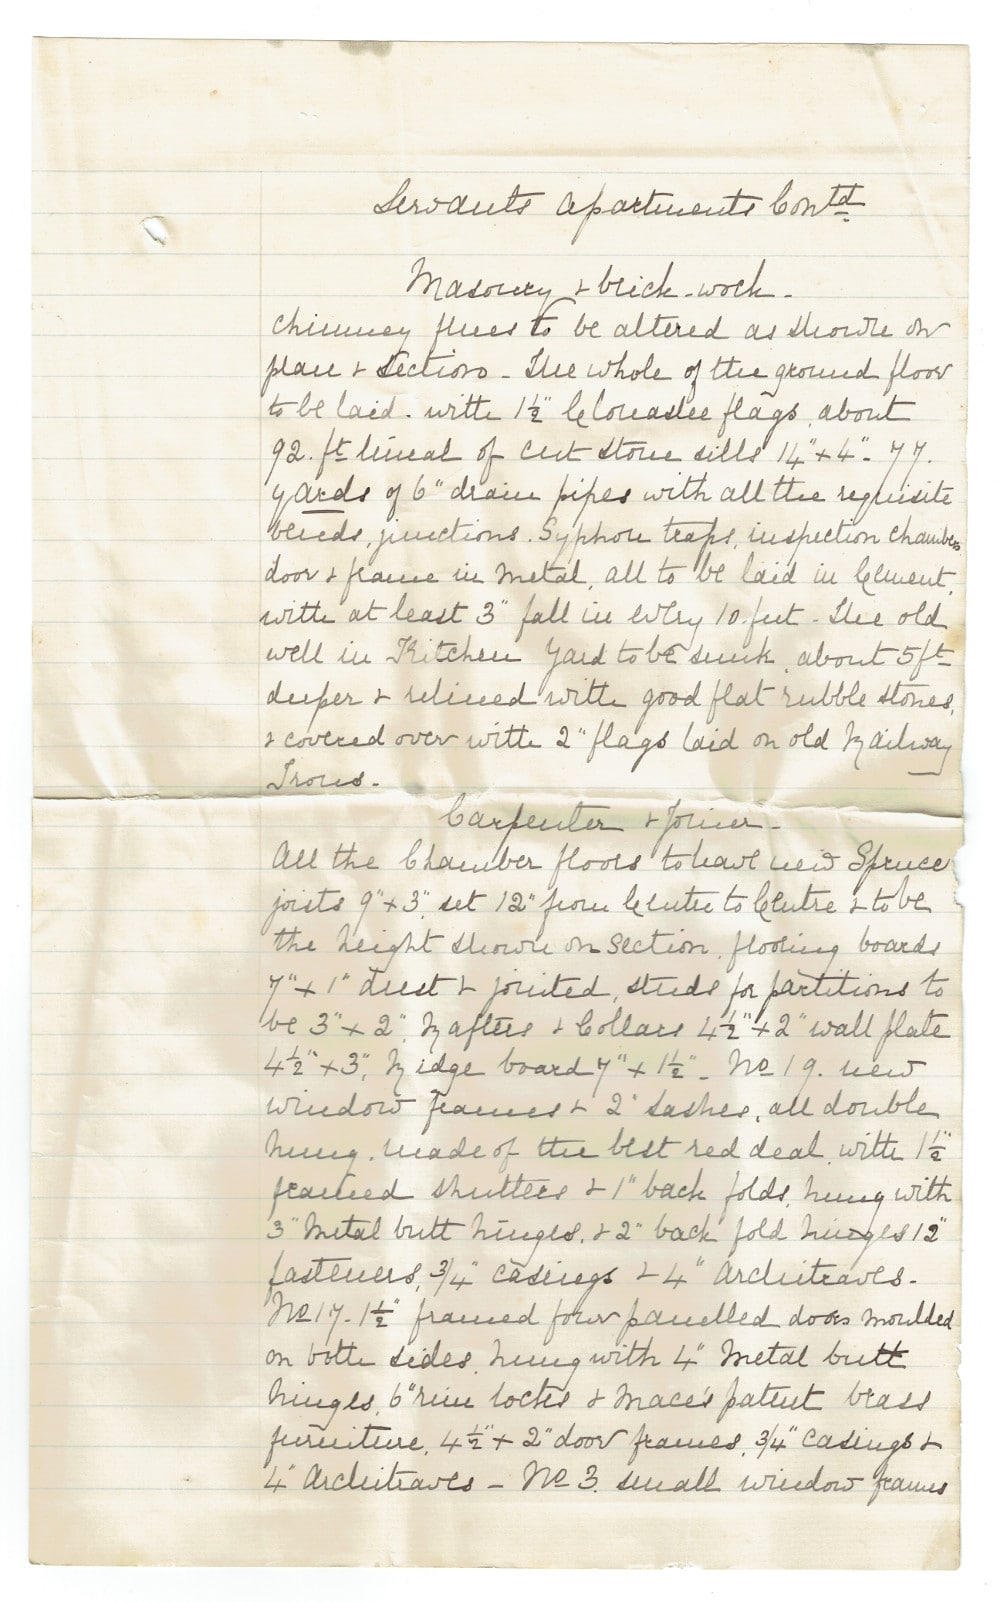 Servants Apartments Contd
Masonry & brick-work -
Chimney flues to be altered as shown on
plan & sections - The whole of the ground floor
to be laid. with 1½" flags, about
92. ft lineal of cut stone sills 14" + 4" - 77.
yards of 6" drain pipes with all the requisite
bends, junctions. Syphon traps, inspection chambers,
door & frame in metal, all to be laid in Cement,
with at least 3" fall in every 10 feet - The old
well in Kitchen Yard to be sunk, about 5ft
deeper & relined with good flat rubble stones,
& covered over with 2" flags laid on old Railway
Irons -
Carpenter & Joiner -
All the Chamber floors to have new Spruce
joists 9" + 3", set 12" from Centre to Centre & to be
the height shown on Section, flooring boards
7" + 1" drest & jointed, studs for partitions to
be 3" + 2", Rafters & Collars 4½" + 2" wall plate
4½" + 3", Ridge board 7" + 1½" - No 19. new
window frames & 2" sashes, all double
hung, made of the best red deal, with 1½"
framed shutters & 1" back folds, hung with
3" Metal butt hinges, & 2" back fold hinges 12"
fasteners, 3/4" casings & 4" Architraves -
No 17 - 1½" framed four panelled doors moulded
on both sides, hung with 4" Metal butt
hinges, 6" rim locks & Mace's patent brass
furniture, 4½" + 2" door frames, 3/4" casings &
4" Architraves - No 3. small window frames